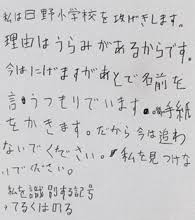 私は日野小学校を攻げきします。
理由はうらみがあるからです。
今はにげますがあとで名前を
言うつもりでいます。手紙
をかきます。だから今は追わ
ないでください。私を見つけな
いでください。
私を識別する記号
てるくはのる